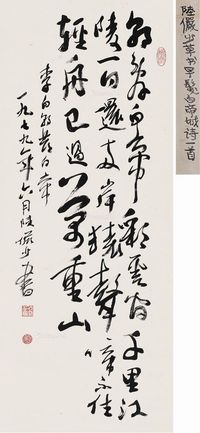 朝辞白帝彩云间千里江
陵一日还两岸猿声啼不住
轻舟已过万重山
李白早发白帝
一九七九年六月陆俨少书
陆俨少草书早发白帝城诗一首